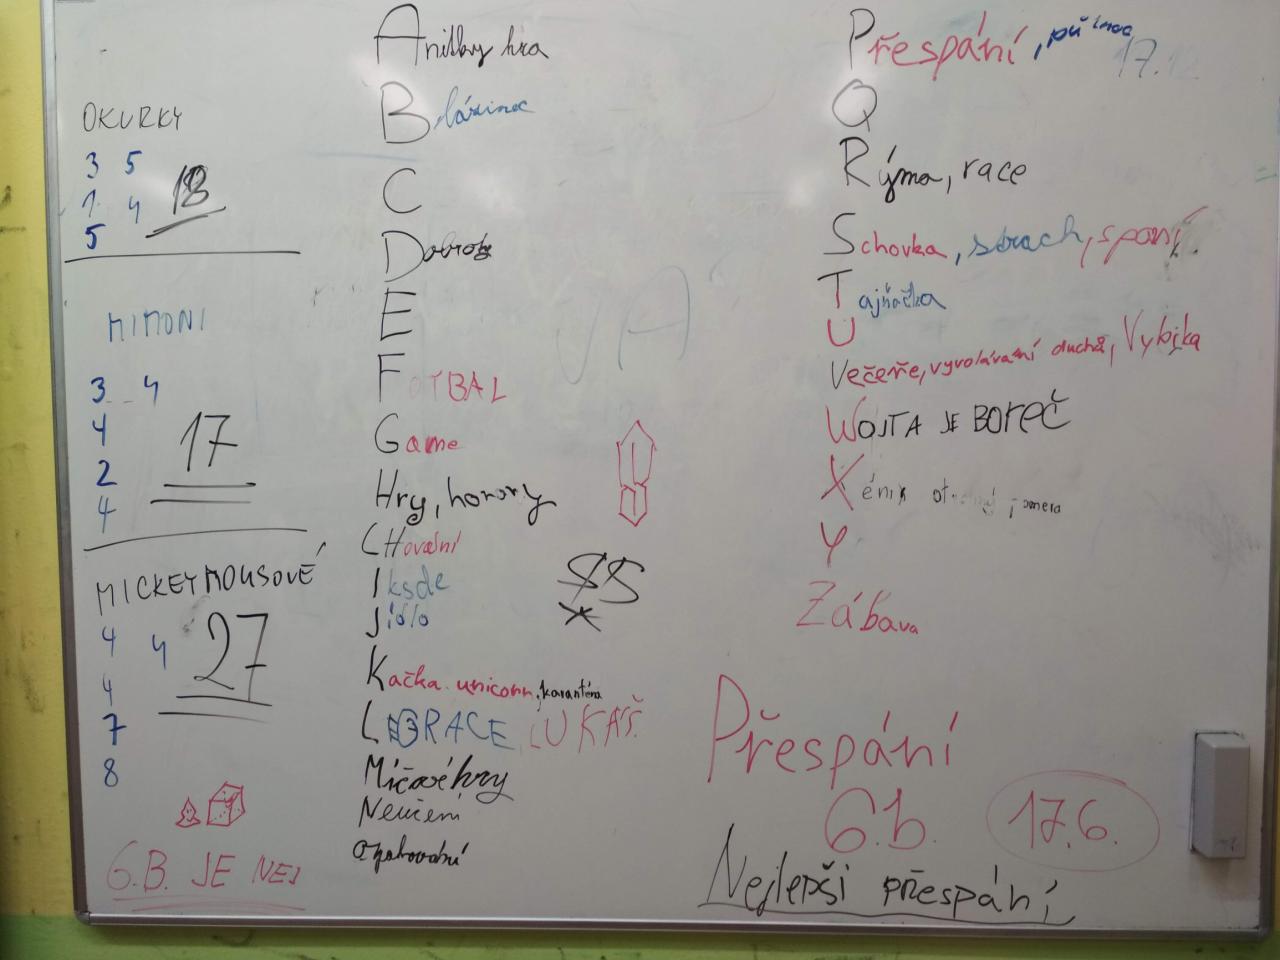 OKURKY
3 5
1 4
5
18
MIMONI
3 4
4
2
4
17
MICKEYMOUSOVÉ
4 4
4
7
8
27
G.B. JE NEJ
Anitky hra
Blázinec
C
Dobroty
E
FOTBAL
Game
Hry, horory
CHování
Iksde
Jídlo
Kačka unicorn, karanténa
LEGRACE, LUKÁŠ
Míčové hry
Neučení
opakování
JA
SS
Přespání,
17.12
Q
Rýma, race
Schovka, strach, spaní
Tajňačka
U
Večeře, vyvolávání duchů, Vybika
WOJTA JE BOREČ
Xénix
Y
Zábava
Přespání
6.b. 17.6.
Nejlepší přespání